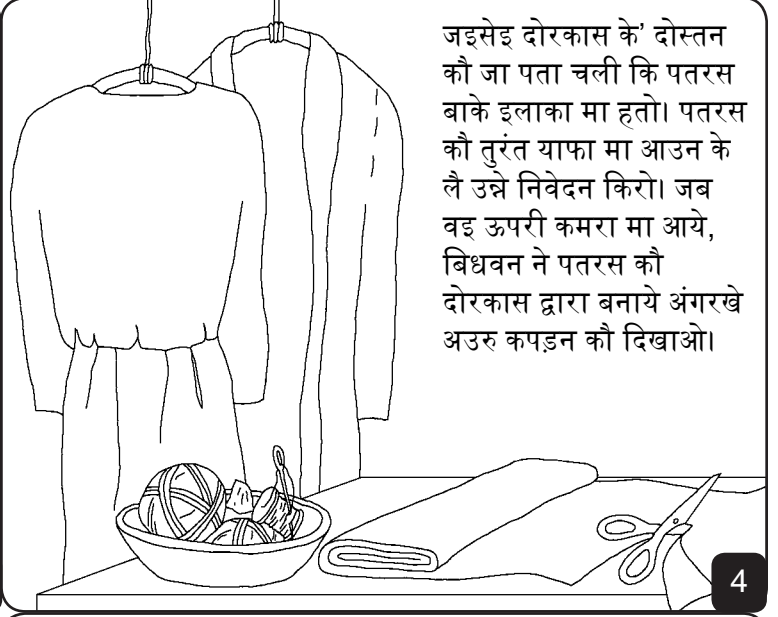 जइसेइ दोरकास के’ दोस्तन
कौ जा पता चली कि पतरस
बाके इलाका मा हतो। पतरस
कौ तुरंत याफा मा आउन के
लै उन्ने निवेदन किरो। जब
वइ ऊपरी कमरा मा आये,
बिधवन ने पतरस कौ
दोरकास द्वारा बनाये अंगरखे
अउरु कपड़न कौ दिखाओ।
4